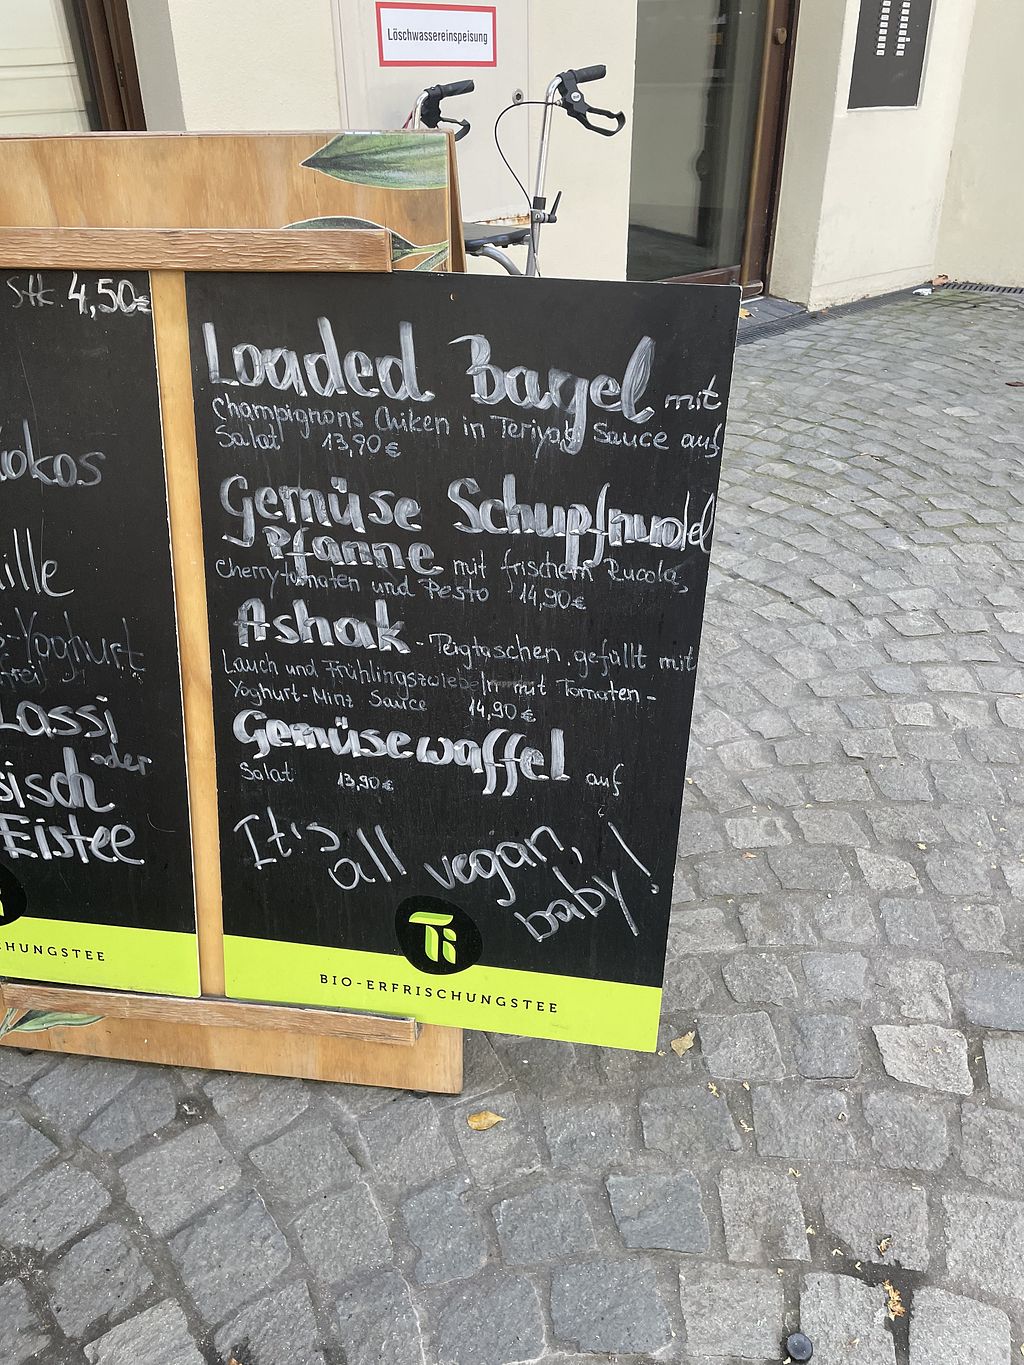 Löschwassereinspeisung
Stk 4,50€
okos
ille
-Yoghurt
frei
Lassi
oder
sisch
Eistee
HUNGSTEE
Loaded Bagel mit
Champignons Chiken in Teriyaki Sauce auf
Salat 13,90€
Gemüse Schupfnudel
Pfanne mit frischem Rucola,
Cherrytomaten und Pesto 14,90€
Ashak - Teigtaschen gefüllt mit
Lauch und Frühlingszwiebeln mit Tomaten-
Yoghurt-Minz Sauce 14,90€
Gemüsewaffel auf
Salat 13,90€
It's all vegan,
baby!
Ti
BIO-ERFRISCHUNGSTEE